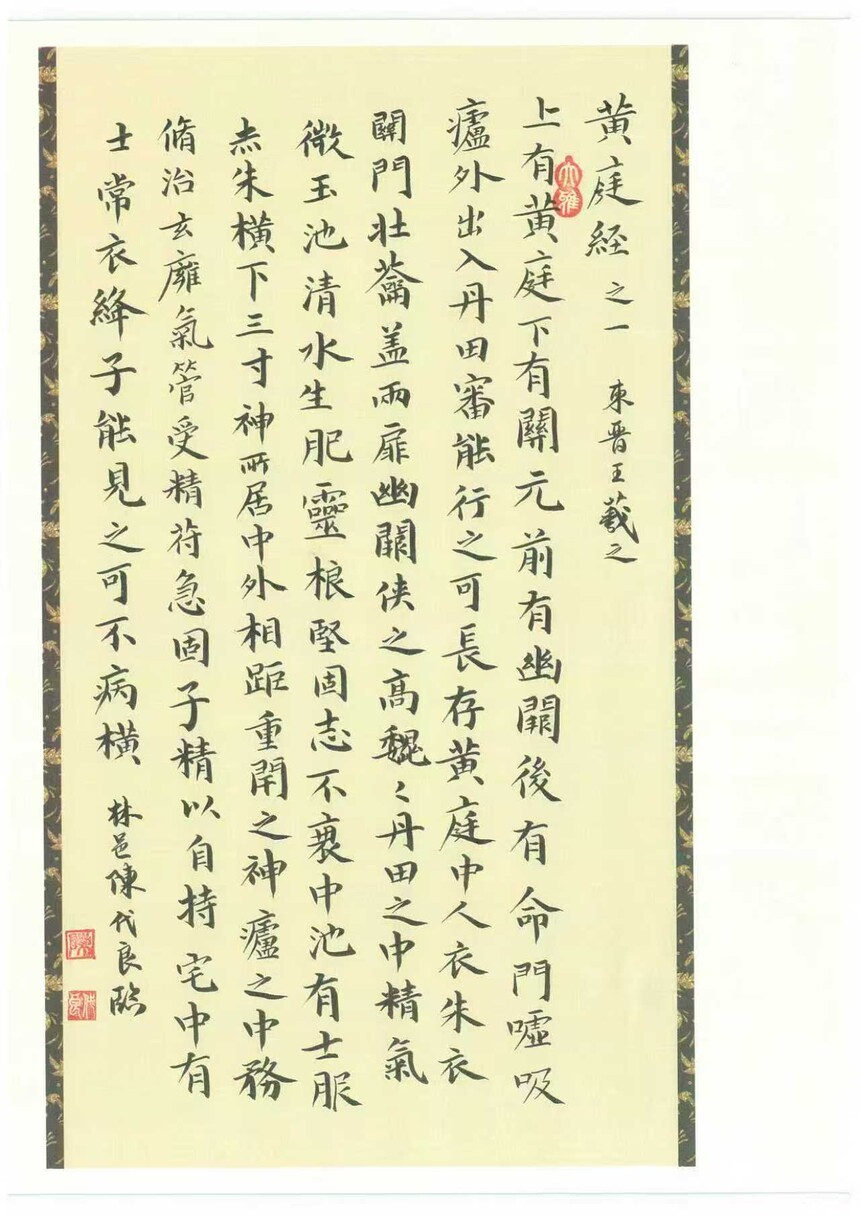 黄庭経之一 東晋王羲之
上有黄庭下有關元前有幽闕後有命門嘘吸
廬外出入丹田審能行之可長存黄庭中人衣朱衣
關門壮蘥盖兩扉幽闕俠之髙魏〻丹田之中精氣
微玉池清水生肥靈根堅固志不衰中池有士服
赤朱横下三寸神所居中外相距重閇之神廬之中務
脩治玄廱氣管受精符急固子精以自持宅中有
士常衣絳子能見之可不病横 林邑陳代良臨
大雅